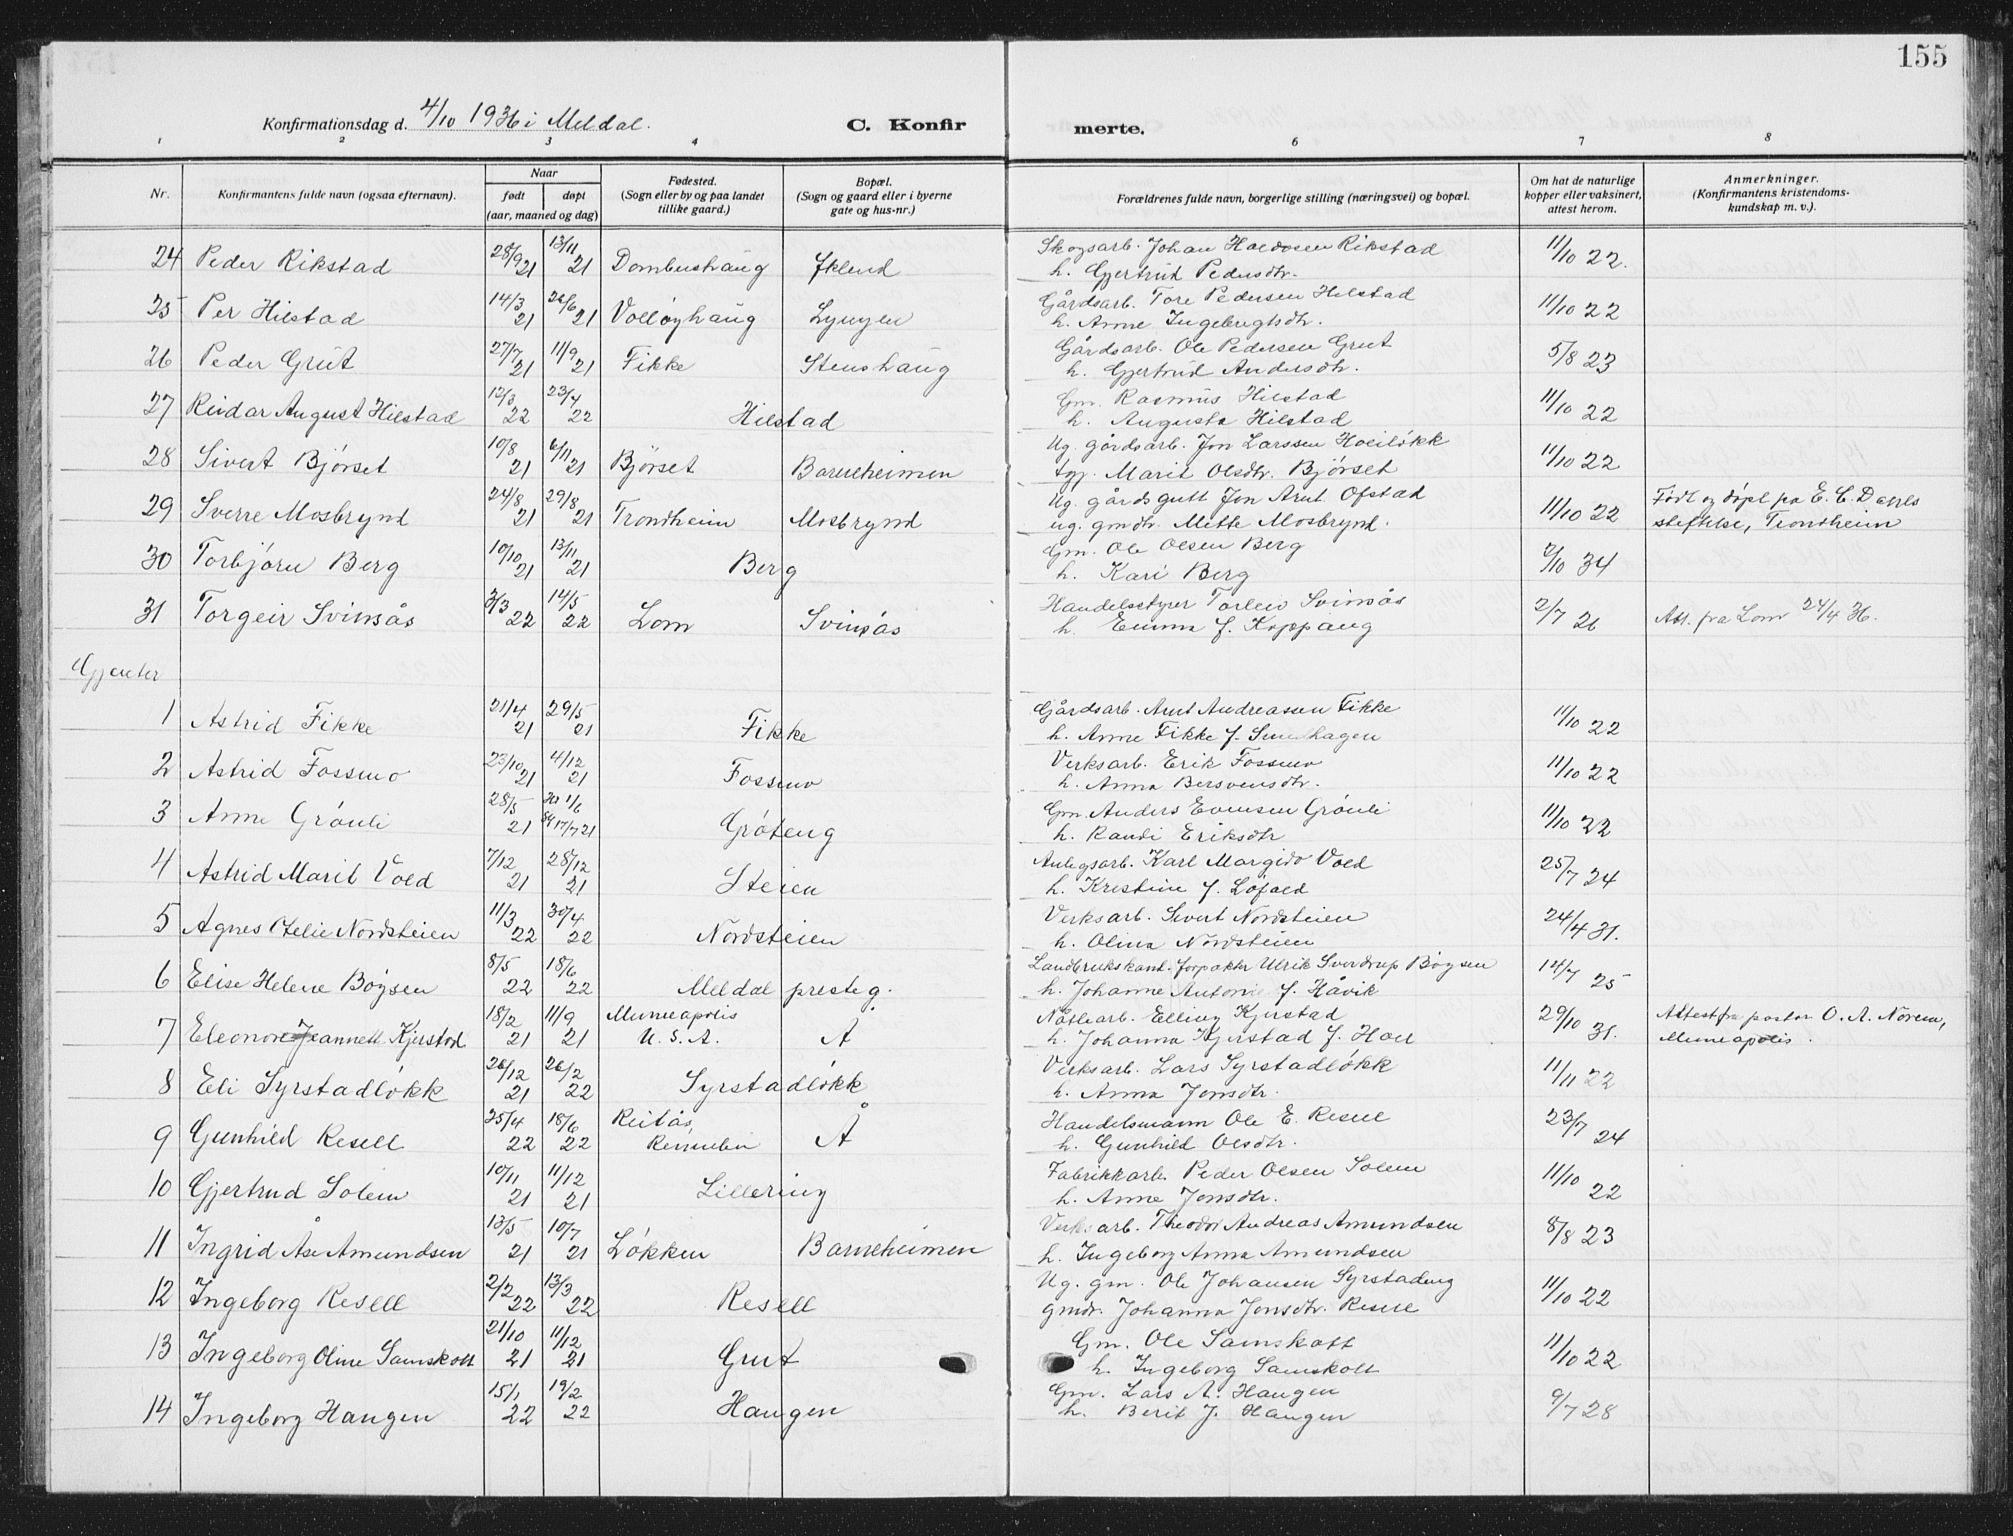 155
Konfirmationsdag d. 4/10 1936 i Meldal.
C. Konfirmerte.
1 2 3 4 6 7 8
Nr. Konfirmantens fulde navn (ogsaa efternavn). Naar født døpt (aar, maaned og dag) Fødested. (Sogn eller by og paa landet tillike gaard.) Bopæl. (Sogn og gaard eller i byerne gate og hus-nr.) Forældrenes fulde navn, borgerlige stilling (næringsvei) og bopæl. Om hat de naturlige kopper eller vaksinert, attest herom. Anmerkninger. (Konfirmantens kristendoms-kundskap m. v.).
24 Peder Rikstad 28/9 21 13/11 21 Dombushaug Skogsarb. Johan Haldosen Rikstad 11/10 22.
h. Gjertrud Pedersdtr.
25 Per Hilstad 14/3 21 26/6 21 Volløyhaug Lyngen Gårdsarb. Tore Pedersen Hilstad 11/10 22
h. Anne Ingebrigtsdtr.
26 Peder Grut 27/7 21 11/9 21 Fikke Stenshaug Gårdsarb. Ole Pedersen Grut 5/8 23
h. Gjertrud Andersdtr.
27 Reidar August Hilstad 12/3 22 23/4 22 Hilstad Gm. Rasmus Hilstad 11/10 22
h. Augusta Hilstad
28 Sivert Bjørset 10/8 21 6/11 21 Bjørset Barneheimen Ug. gårdsarb. Jon Larssen Hoeiløkk 11/10 22
tgj. Marit Olsdtr. Bjørset
29 Sverre Mosbrynd 24/8 21 29/8 21 Trondheim Mosbrynd Ug. gårdsgutt Jon Arnt Ofstad 11/10 22 Født og døpt på E. C. Dahls
ug. gmdtr. Mette Mosbrynd. stiftelse, Trondheim
30 Torbjørn Berg 10/10 21 13/11 21 Berg Gm. Ole Olsen Berg 2/10 34
h. Kari Berg
31 Torgeir Svinsås 3/3 22 14/5 22 Lom Svinsås Handelsstyrer Torleiv Svinsås 2/7 26 Att. fra Lom 24/4 36.
h. Emma f. Koppang
Gjenter
1 Astrid Fikke 21/4 21 29/5 21 Fikke Gårdsarb. Arnt Andreassen Fikke 11/10 22
h. Anne Fikke f.
2 Astrid Fossmo 23/10 21 4/12 21 Fossmo Verksarb. Erik Fossmo 11/10 22
h. Anna Bersvensdtr.
3 Anne Grønli 28/5 21 1/6 17/7 21 Grøteng Gm. Anders Evensen Grønli 11/10 22
h. Randi Eriksdtr
4 Astrid Marit Vold 7/12 21 28/12 21 Steien Anlegsarb. Karl Margido Vold 25/7 24
h. Kristine f. Løfald
5 Agnes Otelie Nordsteien 11/3 22 30/4 22 Nordsteien Verksarb. Sivert Nordsteien 24/4 31.
h. Olina Nordsteien
6 Elise Helene Bøysen 8/5 22 18/6 22 Meldal presteg. Landbrukskand. forpakter Ulrik Sverdrup Bøysen 14/7 25
h. Johanne Antonie f. Håvik
7 Eleonore Jeannett Kjerstad 18/2 21 11/9 21 Minneapolis U. S. A. Å Elling Kjerstad 29/10 31. Attest fra pastor O. A. Norem,
h. Johanna Kjerstad f. Hoel Minneapolis.
8 Eli Syrstadløkk 26/12 21 26/2 22 Syrstadløkk Verksarb. Lars Syrstadløkk 11/11 22
h. Anna Jonsdtr.
9 Gunhild Resell 25/4 22 18/6 22 Reitås, Rennebu Å Handelsmann Ole E. Resell 23/7 24
h. Gunhild Olsdtr.
10 Gjertrud Solem 10/11 21 11/12 21 Lillering Fabrikkarb. Peder Olsen Solem 11/10 22
h. Anne Jonsdtr.
11 Ingrid Åse Amundsen 13/5 21 10/7 21 Løkken Barneheimen Verksarb. Theodor Andreas Amundsen 8/8 23
h. Ingeborg Anna Amundsen
12 Ingeborg Resell 2/2 22 13/3 22 Resell Ug. gm. Ole Johansen Syrstadeng 11/10 22
gmdr. Johanna Jonsdtr. Resell
13 Ingeborg Oline Samskott 21/10 21 11/12 21 Grut Gm. Ole Samskott 11/10 22
h. Ingeborg Samskott
14 Ingeborg Haugen 15/1 22 19/2 22 Haugen Gm. Lars A. Haugen 9/7 28
h. Berit J. Haugen